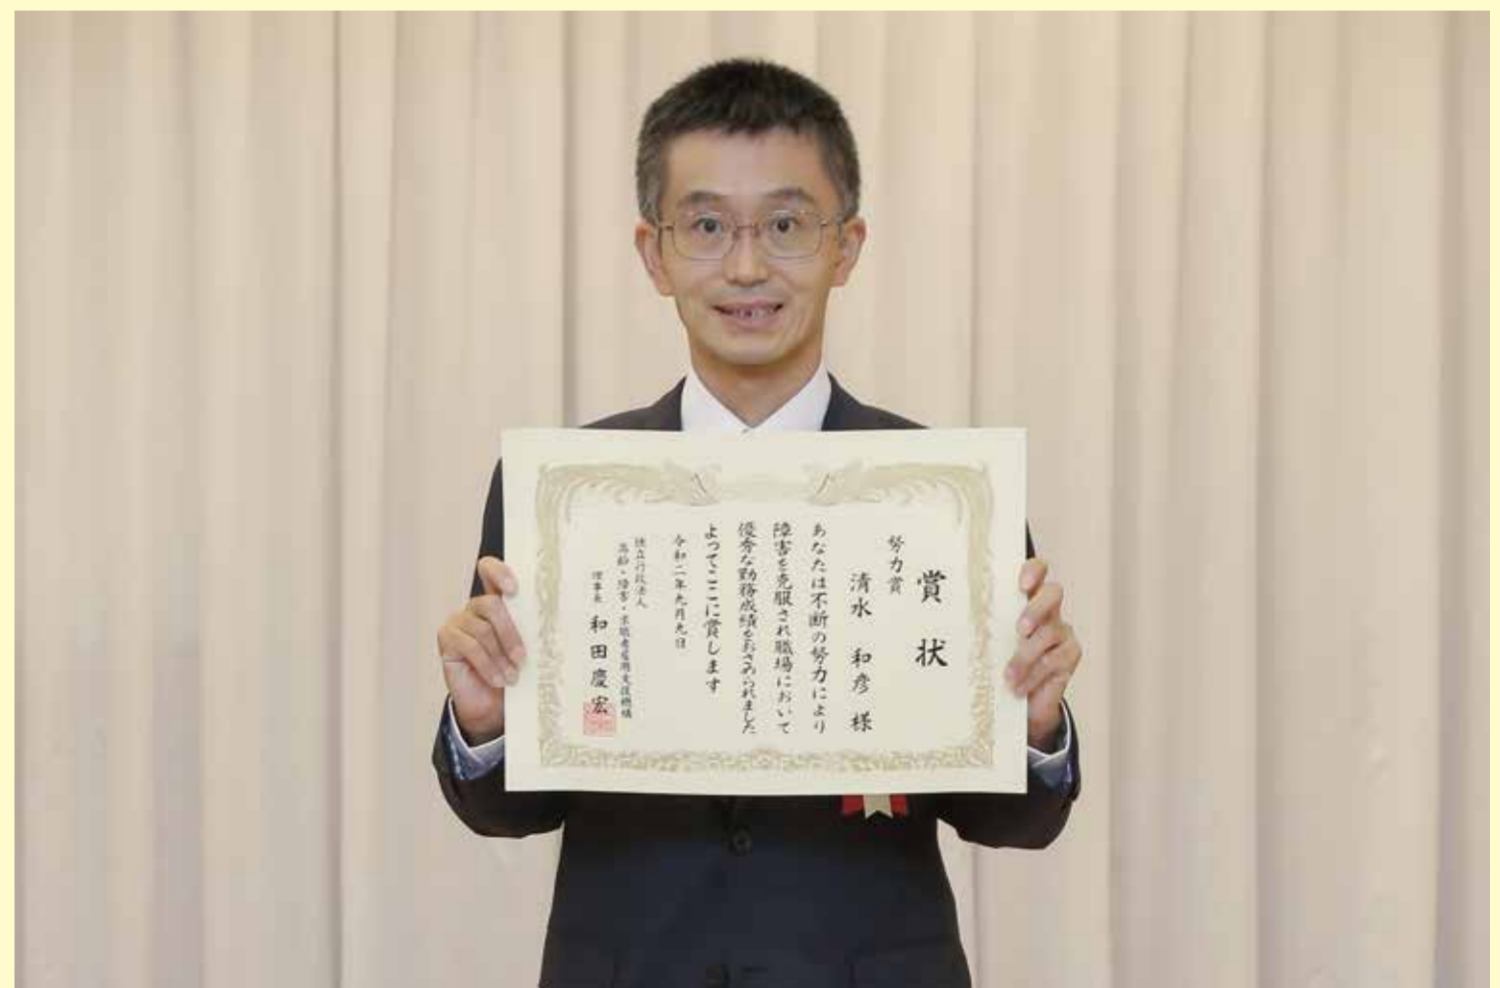 賞状
努力賞
清水 和彦 様
あなたは不断の努力により
障害を克服され職場において
優秀な勤務成績をおさめられました
よってここに賞します
令和二年九月九日
独立行政法人
高齢・障害・求職者雇用支援機構
理事長 和田慶宏